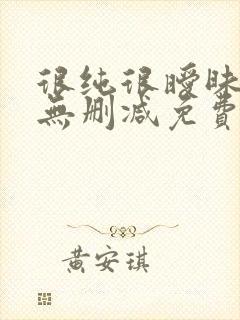 很纯很暧昧
無删减免費
黄安琪